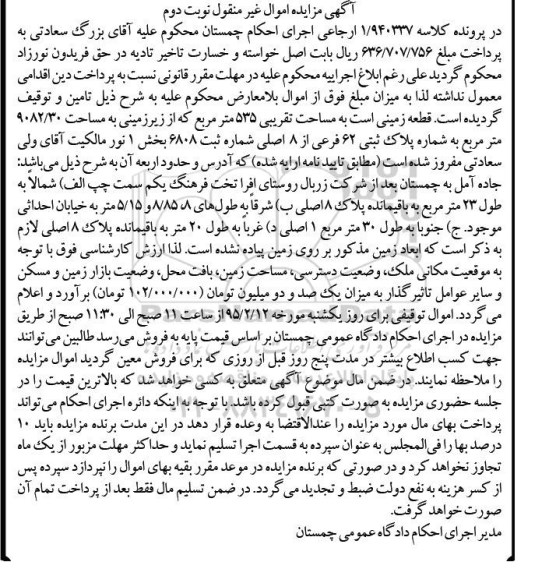 آگهی مزایده اموال غیر منقول نوبت دوم
در پرونده کلاسه ۱/۹۴۰۳۳۷ ارجاعی اجرای احکام چمستان محکوم علیه آقای بزرگ سعادتی به
پرداخت مبلغ ۶۳۶/۷۰۷/۷۵۶ ریال بابت اصل خواسته و خسارت تاخیر تادیه در حق فریدون نورزاد
محکوم گردید علی رغم ابلاغ اجراییه محکوم علیه در مهلت مقرر قانونی نسبت به پرداخت دین اقدامی
معمول نداشته لذا به میزان مبلغ فوق از اموال بلامعارض محکوم علیه به شرح ذیل تامین و توقیف
گردیده است. قطعه زمینی است به مساحت تقریبی ۵۳۵ متر مربع که از زیرزمینی به مساحت ۹۰۸۲/۳۰
متر مربع به شماره پلاک ثبتی ۶۲ فرعی از ۸ اصلی شماره ثبت ۶۸۰۸ بخش ۱ نور مالکیت آقای ولی
سعادتی مفروز شده است (مطابق تایید نامه ارایه شده) که آدرس و حدود اربعه آن به شرح ذیل می‌باشد:
جاده آمل به چمستان بعد از شرکت زربال روستای افرا تخت فرهنگ یکم سمت چپ الف) شمالاً به
طول ۲۳ متر مربع به باقیمانده پلاک ۸اصلی ب) شرقاً به طول‌های ۸، ۸/۸۵ و ۵/۱۵ متر به خیابان احداثی
موجود. ج) جنوباً به طول ۳۰ متر مربع ۱ اصلی د) غرباً به طول ۲۰ متر به باقیمانده پلاک ۸اصلی لازم
به ذکر است که ابعاد زمین مذکور بر روی زمین پیاده نشده است. لذا ارزش کارشناسی فوق با توجه
به موقعیت مکانی ملک، وضعیت دسترسی، مساحت زمین، بافت محل، وضعیت بازار زمین و مسکن
و سایر عوامل تاثیرگذار به میزان یک صد و دو میلیون تومان (۱۰۲/۰۰۰/۰۰۰ تومان) برآورد و اعلام
می‌گردد. اموال توقیفی برای روز یکشنبه مورخه ۹۵/۲/۱۲ از ساعت ۱۱ صبح الی ۱۱:۳۰ صبح از طریق
مزایده در اجرای احکام دادگاه عمومی چمستان بر اساس قیمت پایه به فروش می‌رسد طالبین می‌توانند
جهت کسب اطلاع بیشتر در مدت پنج روز قبل از روزی که برای فروش معین گردید اموال مزایده
را ملاحظه نمایند. در ضمن مال موضوع آگهی متعلق به کسی خواهد شد که بالاترین قیمت را در
جلسه حضوری مزایده به صورت کتبی قبول کرده باشد. با توجه به اینکه دائره اجرای احکام می‌تواند
پرداخت بهای مال مورد مزایده را عندالاقتضا به وعده قرار دهد در این مدت برنده مزایده باید ۱۰
درصد بها را فی‌المجلس به عنوان سپرده به قسمت اجرا تسلیم نماید و حداکثر مهلت مزبور از یک ماه
تجاوز نخواهد کرد و در صورتی که برنده مزایده در موعد مقرر بقیه بهای اموال را نپردازد سپرده پس
از کسر هزینه به نفع دولت ضبط و تجدید می‌گردد. در ضمن تسلیم مال فقط بعد از پرداخت تمام آن
صورت خواهد گرفت.
مدیر اجرای احکام دادگاه عمومی چمستان